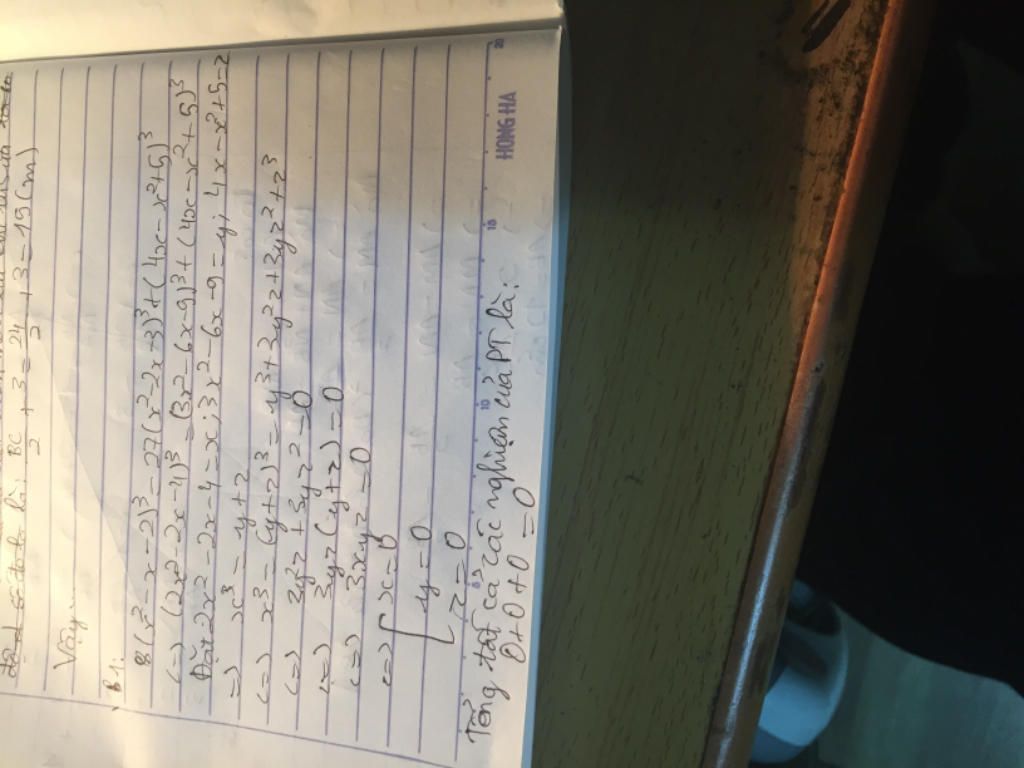 là: BC/2 + 3 = 24/2 + 3 = 15 (cm)
Vậy
B1:
8(x² - x - 2)³ = 27(x² - 2x - 3)³ + (4x - x² + 5)³
(=) (2x² - 2x - 4)³ = (3x² - 6x - 9)³ + (4x - x² + 5)³
Đặt 2x² - 2x - 4 = x; 3x² - 6x - 9 = y; 4x - x² + 5 = z
=) x³ = y + z
(=) x³ = (y + z)³ = y³ + 3y²z + 3yz² + z³
(=) 3y²z + 3yz² = 0
(=) 3yz(y + z) = 0
(=) 3xyz = 0
(=) [ x = 0
y = 0
z = 0
Tổng tất cả các nghiệm của PT là:
0 + 0 + 0 = 0
5 10 15 20
HONG HA